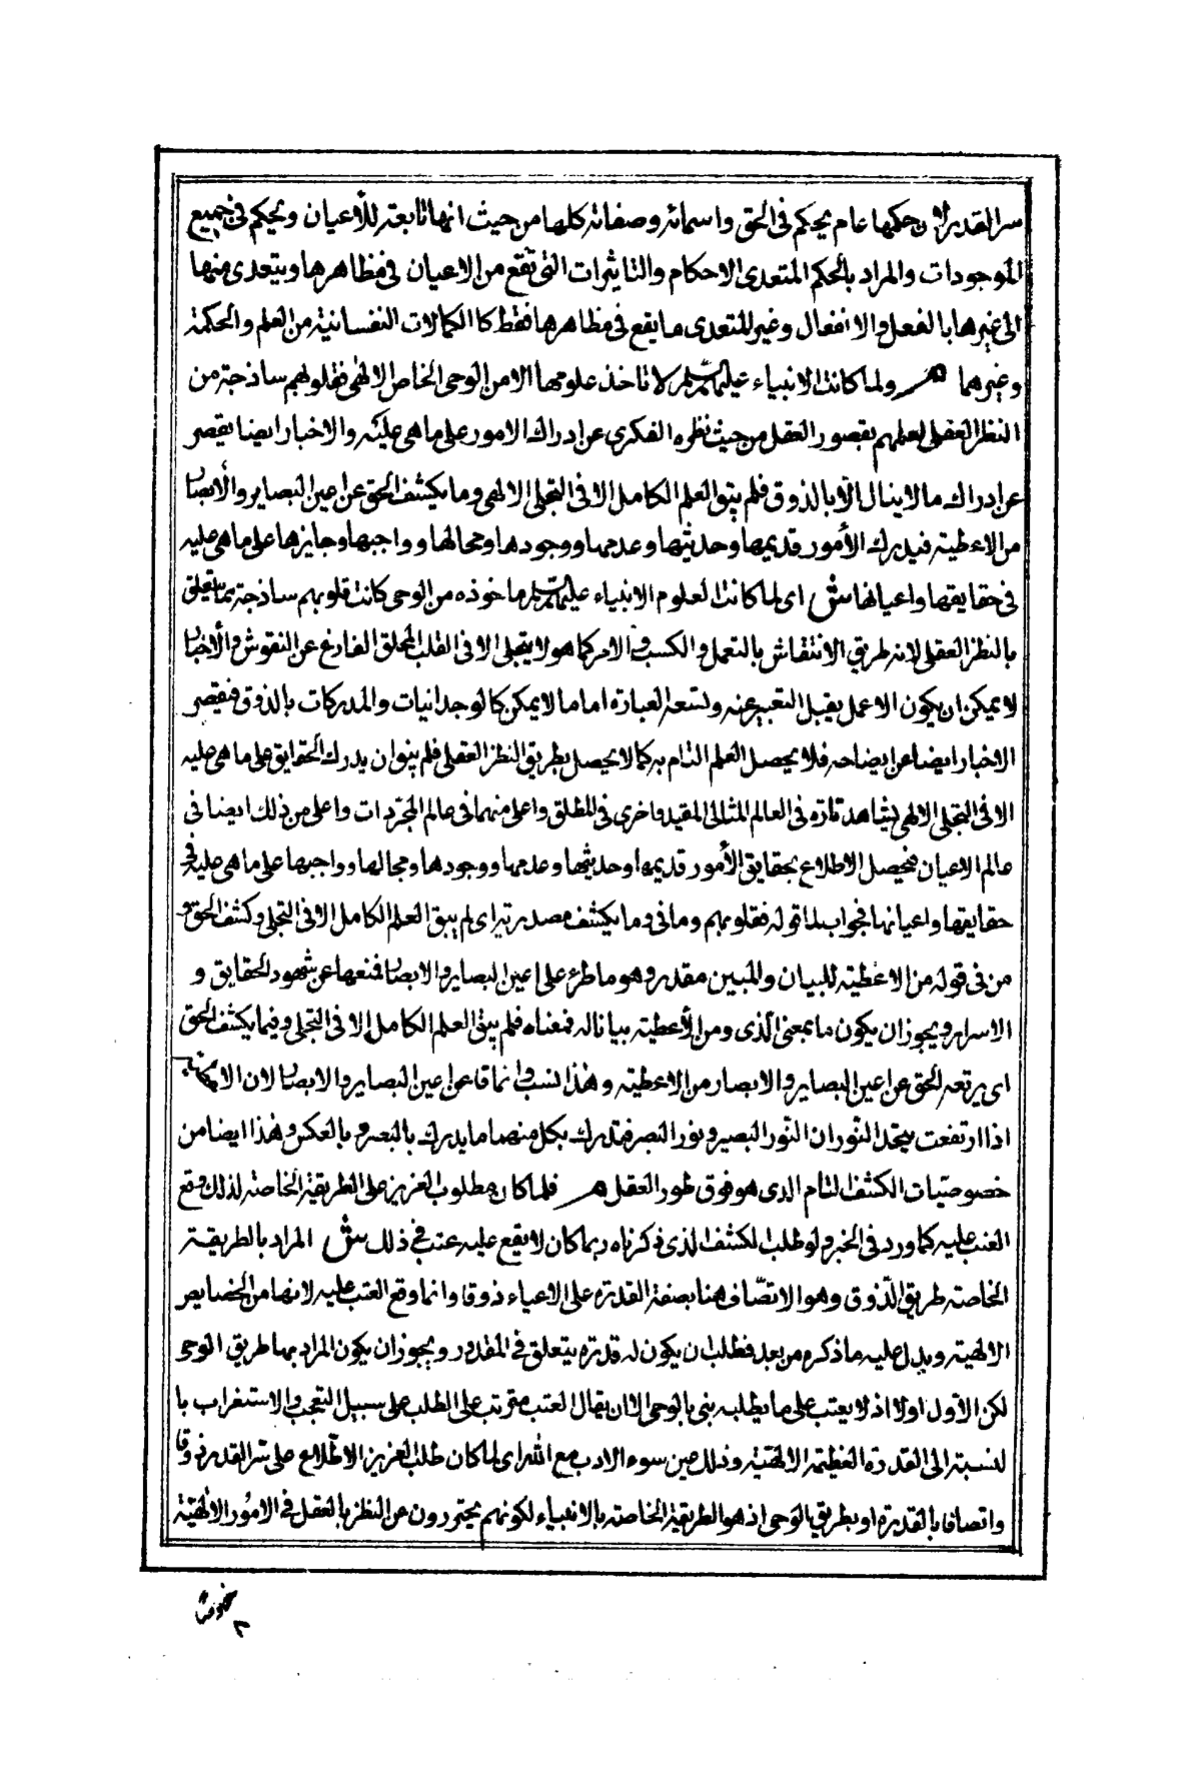 سر القدر لان حكمها عام يحكم فى الحق واسمائه وصفاته كلها من حيث انها تابعته للأعيان ويحكم فى جميع
الموجودات والمراد بالحكم المتعدى الاحكام والتاثيرات التى تقع من الاعيان فى مظاهرها ويتعدى منها
الى غيرها بالفعل والانفعال وغير المتعدى ما يقع فى مظاهرها فقط كا الكمالات النفسانية من العلم والحكمة
وغيرهما ولما كانت الانبياء عليهم السلم لا تاخذ علومها الا من الوحى الخاص الالهى فقلوبهم ساذجة من
النظر العقلى لعلمهم بقصور العقل من حيث نظره الفكرى عن ادراك الامور على ما هى عليه والاخبار ايضا يقصر
عن ادراك ما لا ينال الا بالذوق فلم يبق العلم الكامل الا فى التجلى الالهى وما يكشف الحق عن اعين البصاير والأبصار
من الاغطية فيدرك الأمور قديمها وحديثها وعدمها ووجودها ومحالها وواجبها وجايزها على ما هى عليه
فى حقايقها واعيانها ش اى لما كانت العلوم الانبياء عليهم السلم ماخوذه من الوحى كانت قلوبهم ساذجة مما يتعلق
بالنظر العقلى لانه طريق الانتقاش بالتعمل والكسب والامر كما هو لا يتجلى الا فى القلب المحلق الفارغ عن النقوش والأخبار
لا يمكن ان يكون الا عمل يقبل التعبير عنه وتسعه العبارة اما ما لا يمكن كالوجدانيات والمدركات بالذوق فيقصر
الاخبار ايضا عن ايضاحه فلا يحصل العلم التام به كما لا يحصل بطريق النظر العقلى فلم يبق ان يدرك الحقايق على ما هى عليه
الا فى التجلى الالهى يشاهد تارة فى العالم المثالى المقيد واخرى فى المطلق واعلى منهما فى عالم المجردات واعلى من ذلك ايضا فى
عالم الاعيان فيحصل الاطلاع بحقايق الأمور قديمها وحديثها وعدمها ووجودها ومحالها وواجبها على ما هى عليه فى
حقايقها واعيانها فجواب لما قوله فقلوبهم وما فى وما يكشف مصدرية اى لم يبق العلم الكامل الا فى التجلى وكشف الحق و
من فى قوله من الاغطية للبيان والمبين مقدر وهو ما طرء على اعين البصاير والابصار فمنعها عن شهود الحقايق و
الاسرار ويجوز ان يكون ما بمعنى الذى ومن الأغطية بيانا له فمعناه فلم يبق العلم الكامل الا فى التجلى وفيما يكشف الحق
اى يرتعه الحق عن اعين البصاير والابصار من الاغطية وهذا عن اعين البصاير والابصار لان
اذا ارتفعت يتحد النوران النور البصير ونور البصر فيدرك بكل منهما ما يدرك بالبصر وبالعكس وهذا ايضا من
خصوصيات الكشف التام الذى هو فوق طور العقل فلما كان مطلوب العزير على الطريقة الخاصة لذلك وقع
العتب عليه كما ورد فى الخبر ولو طلب الكشف الذى ذكرناه ربما كان لا يقع عليه عتب فى ذلك ش المراد بالطريقة
الخاصة طريق الذوق وهو الاتصاف هنا بصفة القدرة على الاحياء ذوقا وانما وقع العتب عليه لانها من الخصايص
الالهية ويدل عليه ما ذكره من بعد فطلب ان يكون له قدرة يتعلق فى المقدور ويجوز ان يكون المراد بها طريق الوحى
لكن الأول اولا اذ لا يعتب على ما يطلبه نبى بالوحى الا ان يقال العتب مترتب على الطلب على سبيل التعجب والاستغراب با
لنسبة الى القدرة العظيمة الالهية وذلك من سوء الادب مع الله اى لما كان طلب العزير الاطلاع على سر القدر ذوقا
واتصافا بالقدرة او بطريق الوحى اذ هو الطريقة الخاصة بالانبياء لكونهم يحترزون عن النظر بالعقل فى الامور الالهية